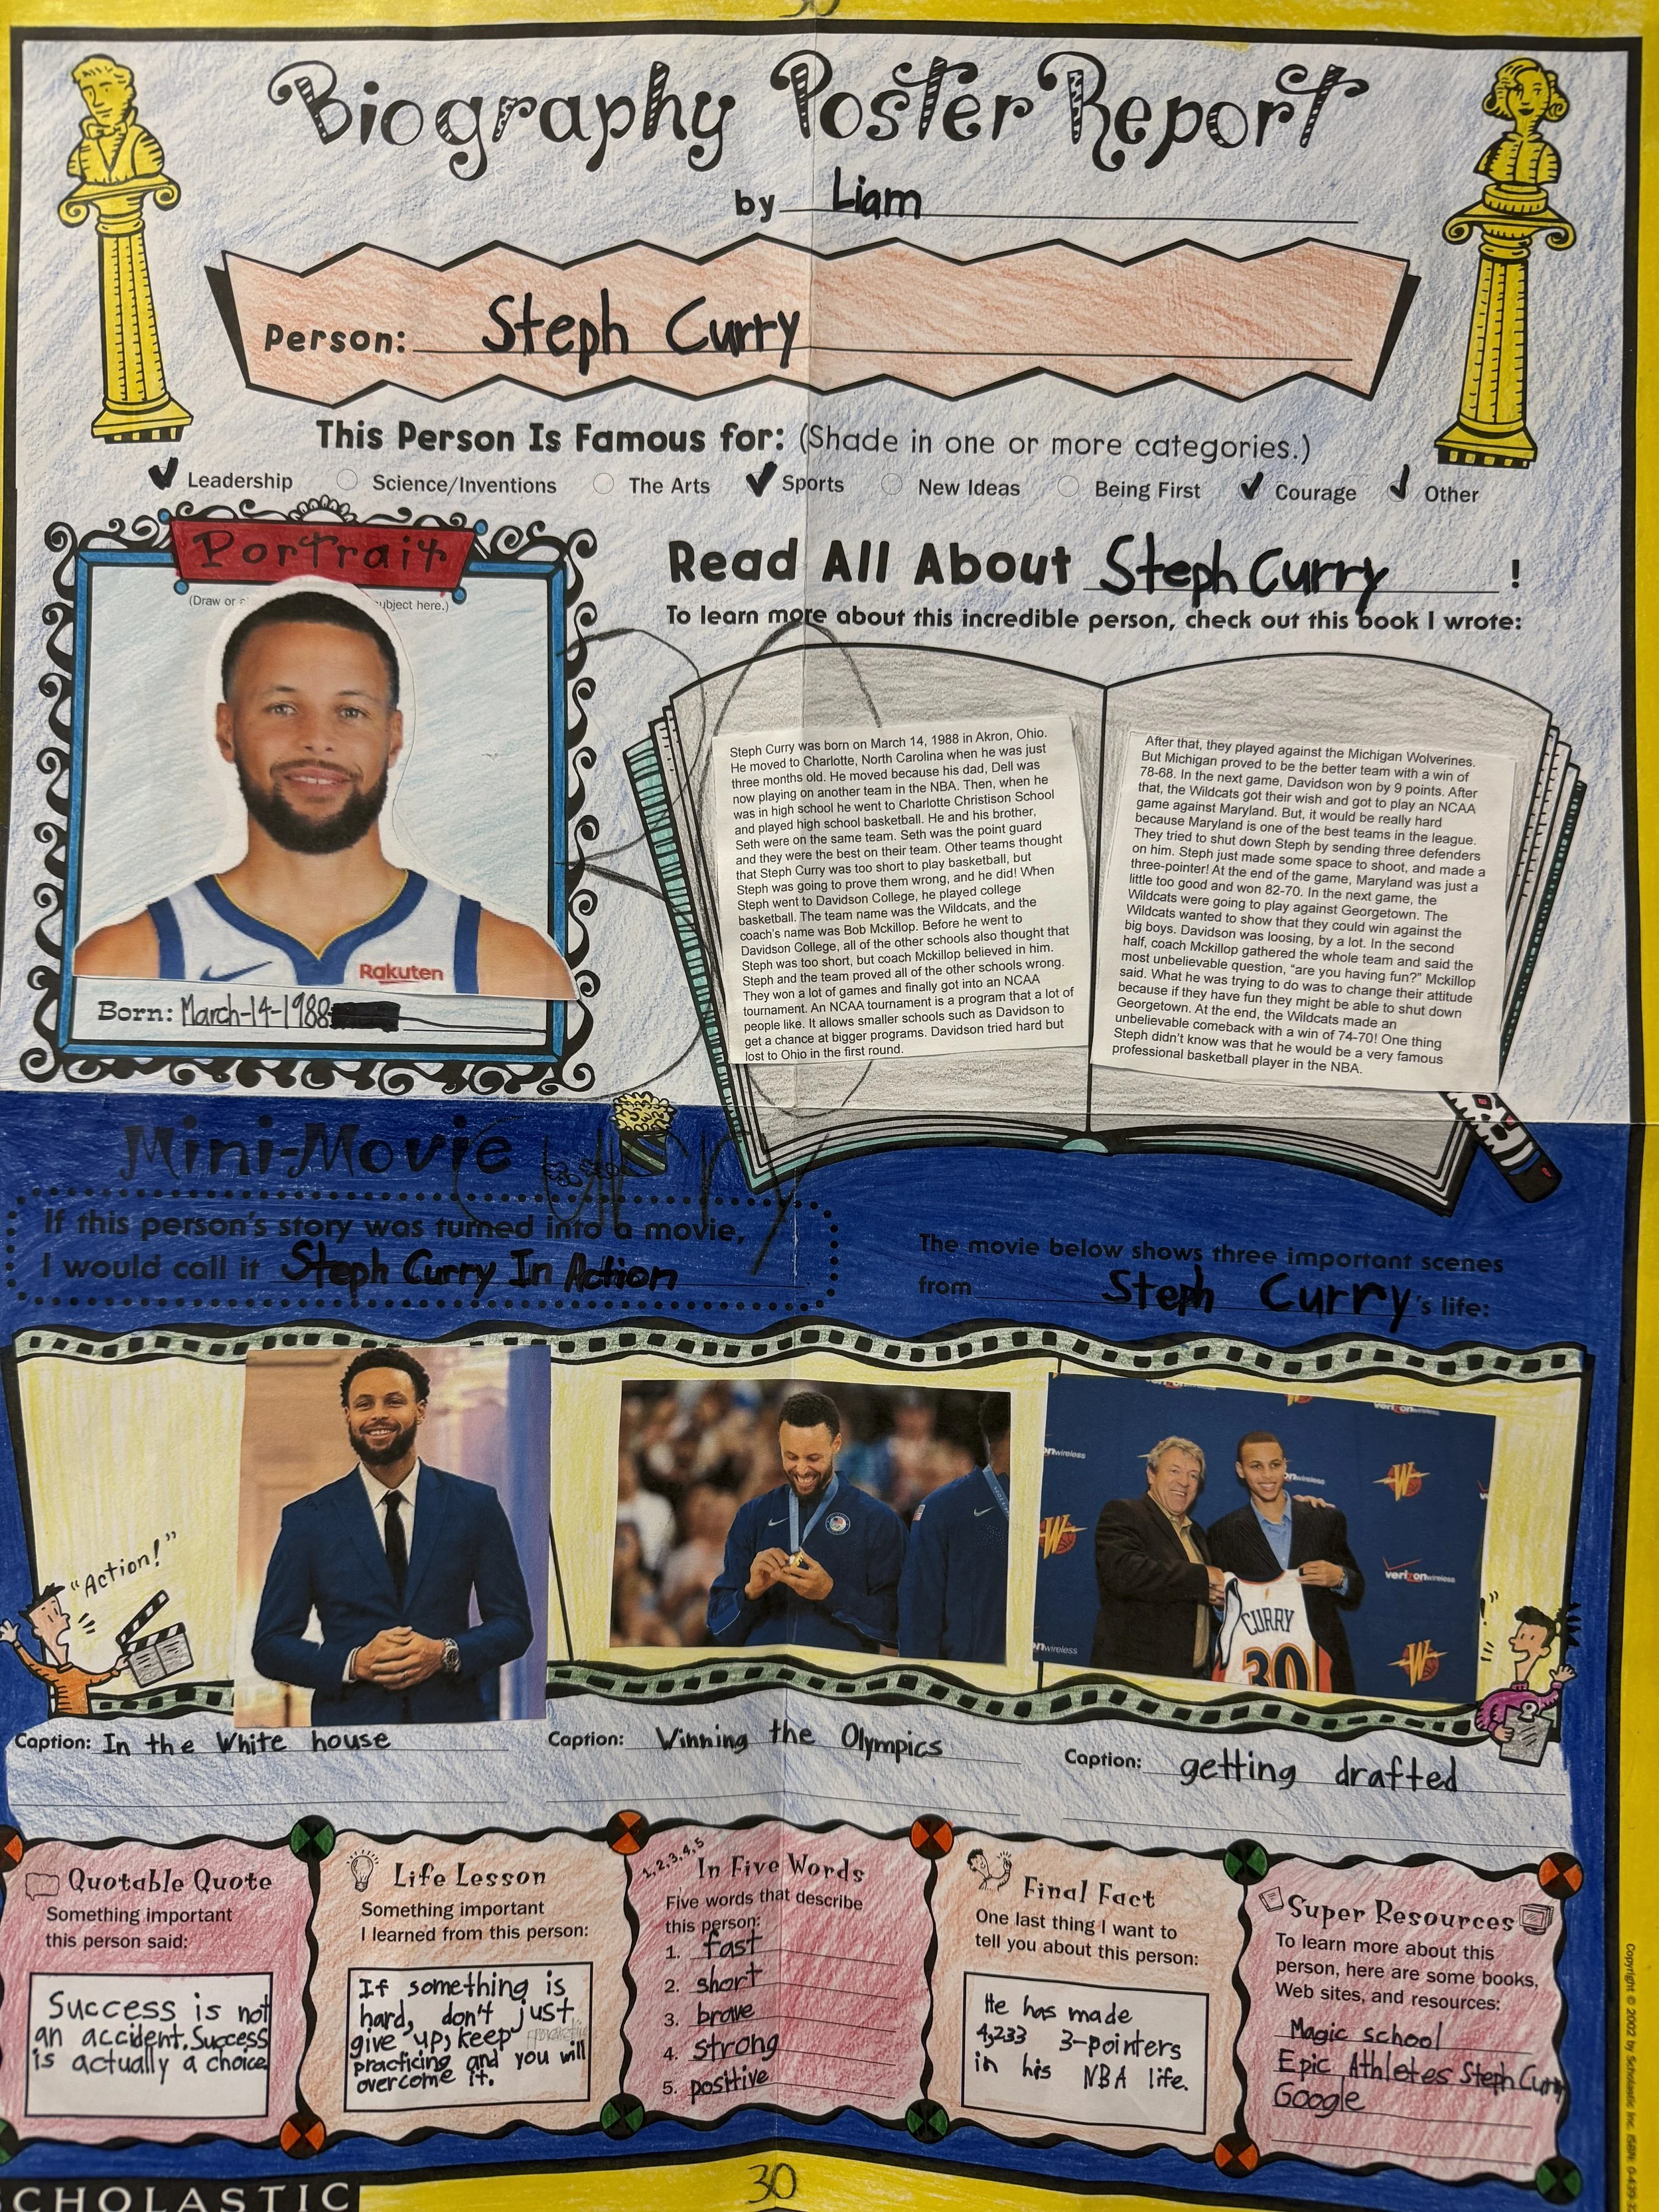 30
Biography Poster Report
by Liam
Person: Steph Curry
This Person Is Famous for: (Shade in one or more categories.)
Leadership Science/Inventions The Arts Sports New Ideas Being First Courage Other
Portrait
(Draw or ubject here.)
Rakuten
Born: March-14-1988
Read All About Steph Curry !
To learn more about this incredible person, check out this book I wrote:
Steph Curry was born on March 14, 1988 in Akron, Ohio.
He moved to Charlotte, North Carolina when he was just
three months old. He moved because his dad, Dell was
now playing on another team in the NBA. Then, when he
was in high school he went to Charlotte Christison School
and played high school basketball. He and his brother,
Seth were on the same team. Seth was the point guard
and they were the best on their team. Other teams thought
that Steph Curry was too short to play basketball, but
Steph was going to prove them wrong, and he did! When
Steph went to Davidson College, he played college
basketball. The team name was the Wildcats, and the
coach's name was Bob Mckillop. Before he went to
Davidson College, all of the other schools also thought that
Steph was too short, but coach Mckillop believed in him.
Steph and the team proved all of the other schools wrong.
They won a lot of games and finally got into an NCAA
tournament. An NCAA tournament is a program that a lot of
people like. It allows smaller schools such as Davidson to
get a chance at bigger programs. Davidson tried hard but
lost to Ohio in the first round.
After that, they played against the Michigan Wolverines.
But Michigan proved to be the better team with a win of
78-68. In the next game, Davidson won by 9 points. After
that, the Wildcats got their wish and got to play an NCAA
game against Maryland. But, it would be really hard
because Maryland is one of the best teams in the league.
They tried to shut down Steph by sending three defenders
on him. Steph just made some space to shoot, and made a
three-pointer! At the end of the game, Maryland was just a
little too good and won 82-70. In the next game, the
Wildcats were going to play against Georgetown. The
Wildcats wanted to show that they could win against the
big boys. Davidson was loosing, by a lot. In the second
half, coach Mckillop gathered the whole team and said the
most unbelievable question, "are you having fun?" Mckillop
said. What he was trying to do was to change their attitude
because if they have fun they might be able to shut down
Georgetown. At the end, the Wildcats made an
unbelievable comeback with a win of 74-70! One thing
Steph didn't know was that he would be a very famous
professional basketball player in the NBA.
Mini-Movie
Curry
If this person's story was turned into a movie,
I would call it Steph Curry In Action
The movie below shows three important scenes
from Steph Curry's life:
"Action!"
verizonwireless
CURRY
30
Caption: In the White house
Caption: Winning the Olympics
Caption: getting drafted
Quotable Quote
Something important
this person said:
Success is not
an accident. Success
is actually a choice
Life Lesson
Something important
I learned from this person:
If something is
hard, don't just
give up, keep
practicing and you will
overcome it.
1,2,3,4,5
In Five Words
Five words that describe
this person:
1. fast
2. short
3. brave
4. strong
5. positive
Final Fact
One last thing I want to
tell you about this person:
He has made
4,233 3-pointers
in his NBA life.
Super Resources
To learn more about this
person, here are some books,
Web sites, and resources:
Magic school
Epic Athletes Steph Curry
Google
30
SCHOLASTIC
Copyright © 2002 by Scholastic Inc.